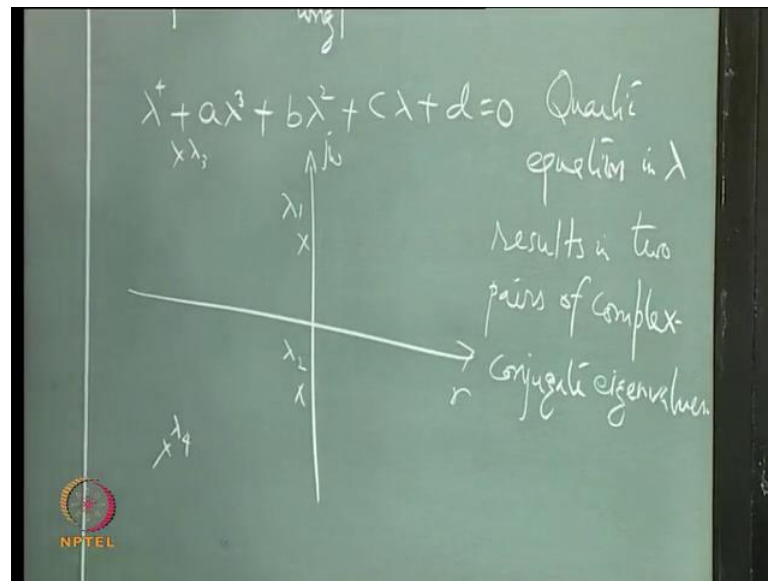 λ⁴ + aλ³ + bλ² + cλ + d = 0 Quartic
equation in λ
results in two
pairs of complex-
conjugate eigenvalues.
× λ₃
jω
λ₁
×
λ₂
×
r
× λ₄
NPTEL